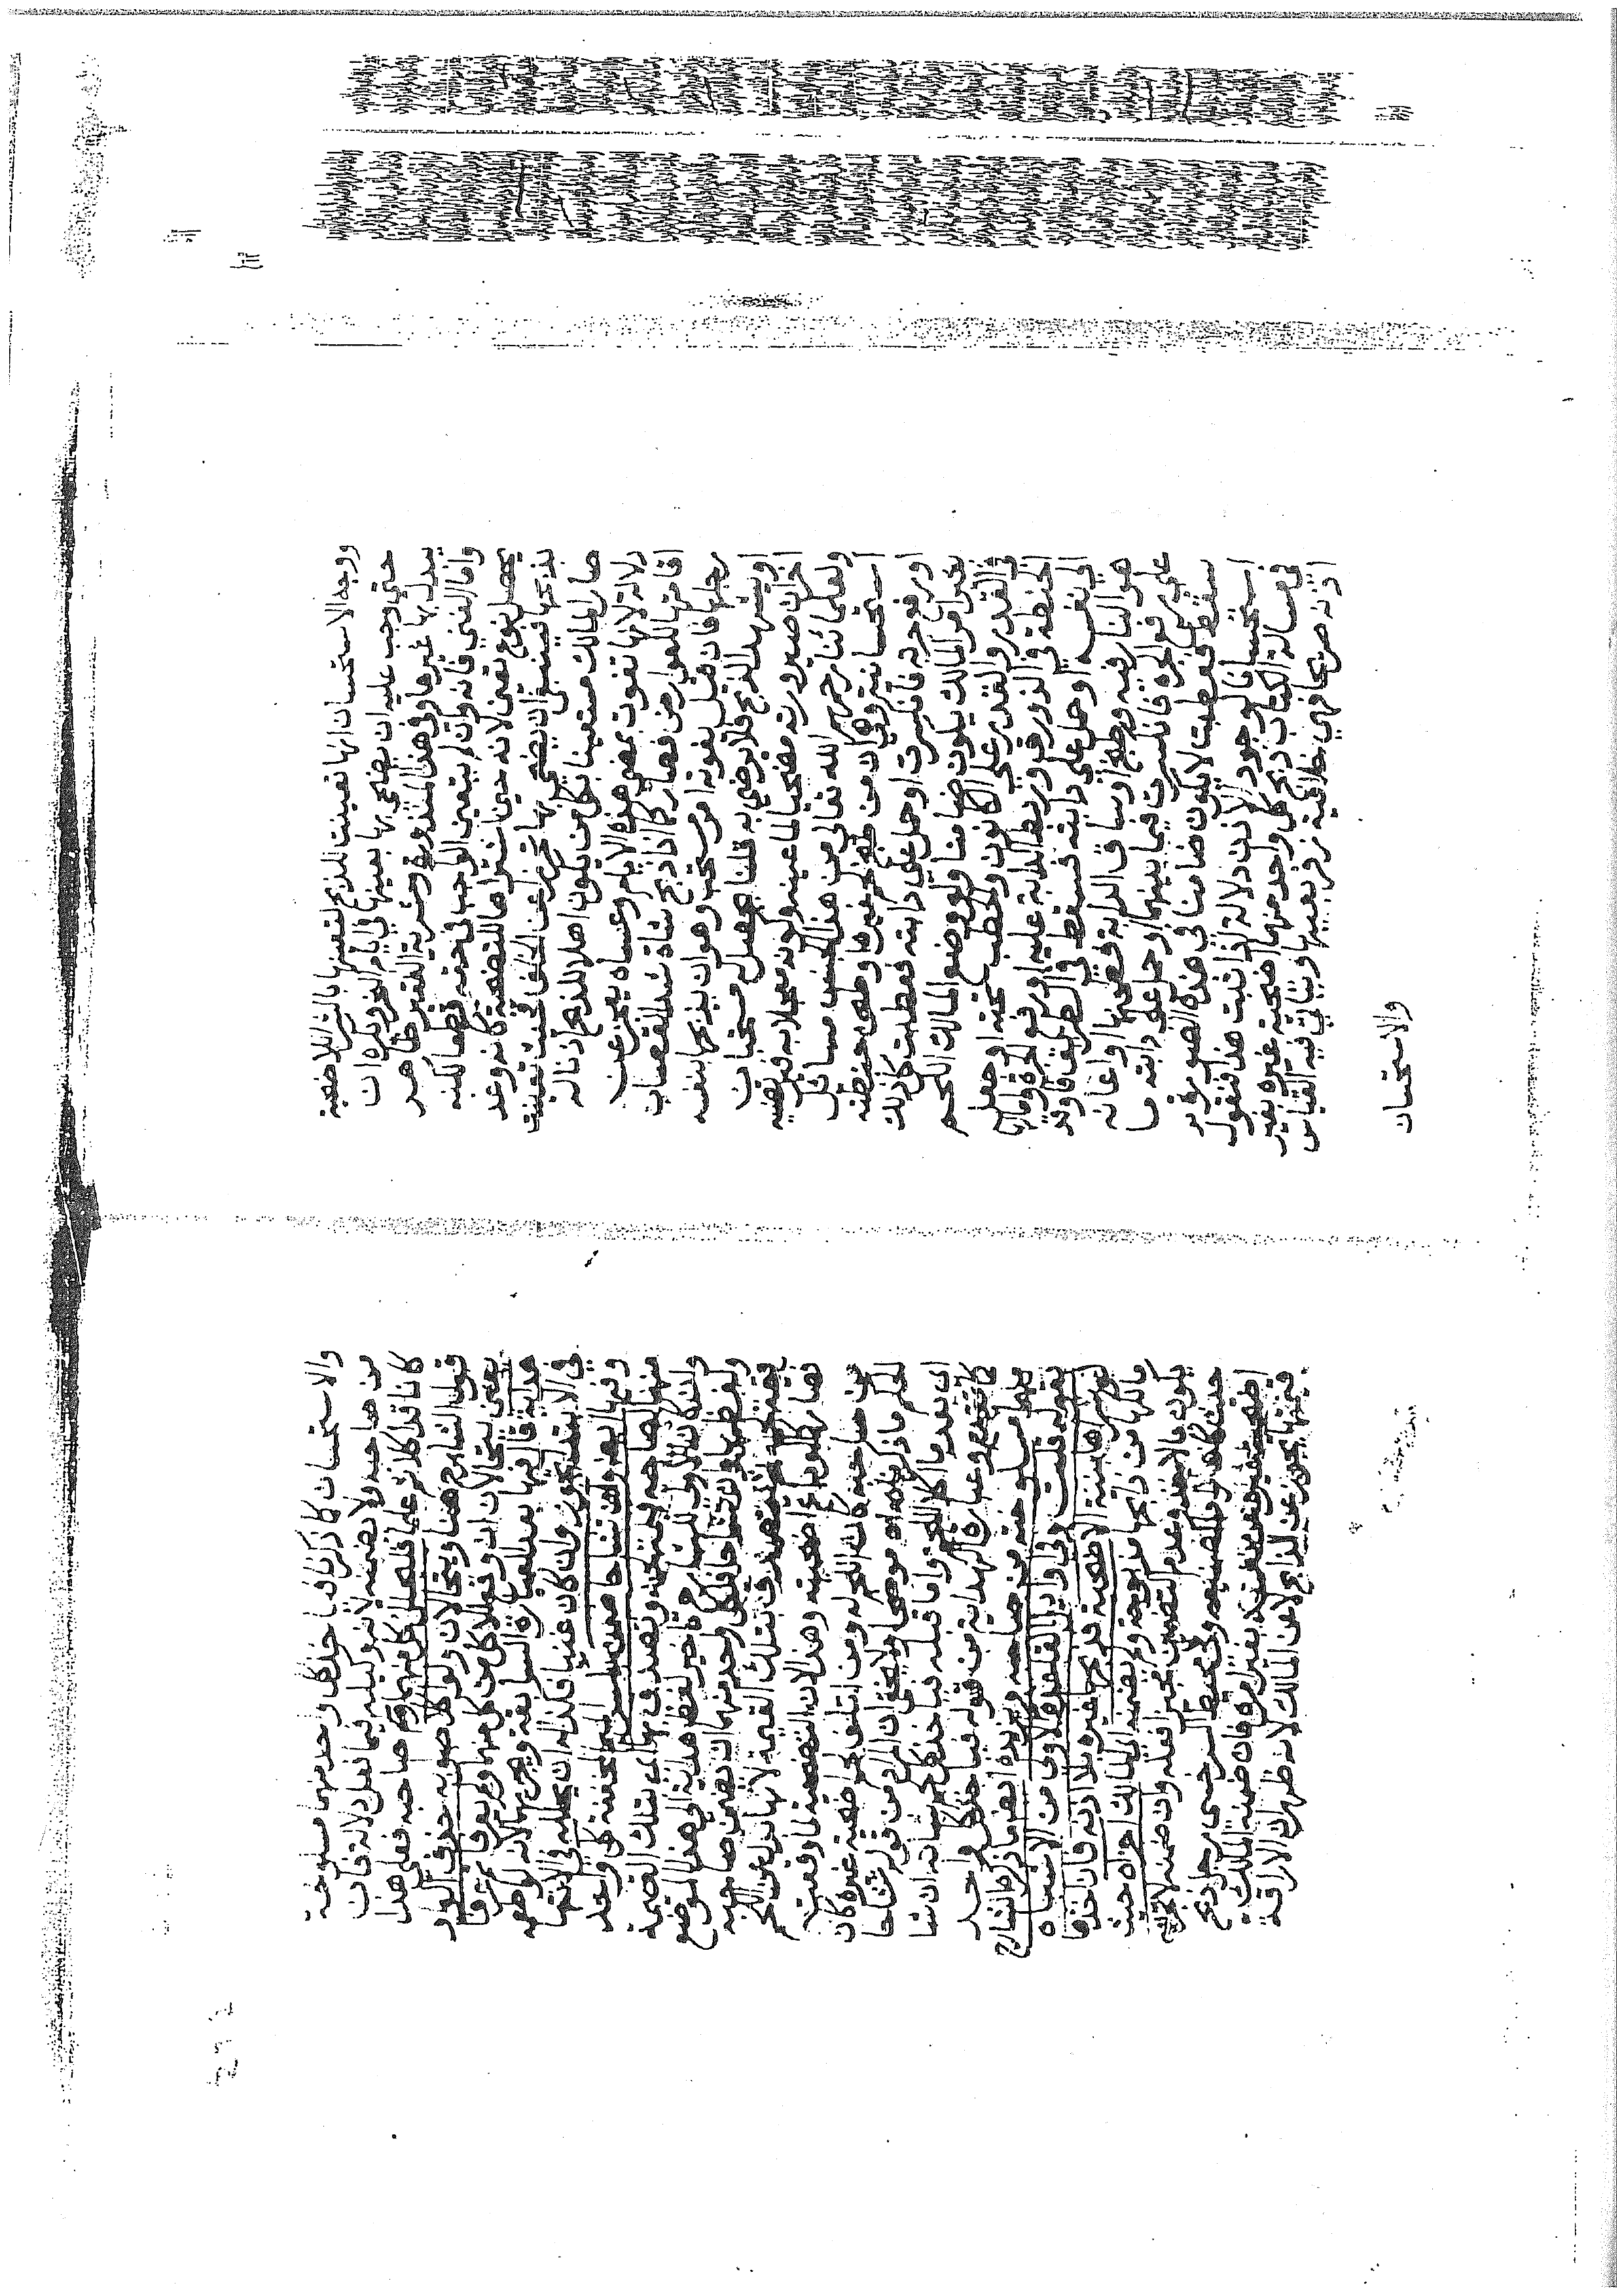 ووجه الاستحسان انها تعينت للذبح لتعينها بالشرا للاضحية
حتى وجب عليه ان يضحي بها بعينها في ايام النحر ويكره ان
يبدل بها غيرها وفي هذا المنذورة وشرية الفقير ظاهر
واما الغني فانه وان لم يتعين الواجب في حقه قطعا لكنه
يحصل نوع تعين لانه حين اشتراها للتضحية كانه وعد
بذبحها فينبغي ان يضحي بها تحرزا عن الخلف فحيث تعينت
صار المالك مستعينا بكل من يكون اهلا للذبح اذنا له
دلالة لانها تفوت بمضي هذه الايام وعساه يعجز عن
اقامتها للعوارض فصار كما اذا ذبح شاة شد القصاب
رجلها فان قيل يفوته امر مستحب وهو ان يذبحها بنفسه
او يشهد الذبح فلا يرضى به قلنا يحصل له مستحبان
اخران صيرورته مضحيا لما عينه ولكونه معجلا به فيرتضيه
ولعلمائنا رحمهم الله تعالى من هذا الجنس مسائل
استحسانية وهي ان من طبخ لحم غيره او طحن حنطته
او رفع جرته فانكسرت او حمل على دابته فعطبت كل ذلك
بغير امر المالك يكون ضامنا ولو وضع المالك اللحم
في القدر والقدر على الكانون والحطب تحته او جعل
الحنطة في الدورق وربط الدابة عليه او رفع الجرة وامالها
الى نفسه او حمل على دابته فسقط في الطريق فاوقد
هو النار فيه وطبخ او ساق الدابة فطحنها او اعانه
على رفع الجرة فانكسرت فيما بينهما او حمل على دابته ما
سقط فعطبت لا يكون ضامنا في هذه الصور
استحسانا لوجود الاذن دلالة اذا ثبت هذا فنقول
في مسالة الكتاب ذبح كل واحد منهما اضحية غيره بغير
اذنه صريحا فهي خلافية زفر بعينها ويتاتى فيه القياس
والاستحسان
والاستحسان كما ذكرنا فياخذ كل واحد منهما مسلوخة
من صاحبه ولا يضمنه لانه وكيله فيما فعل دلالة فان
كانا قد اكلا ثم علما فليحلل كل منهما صاحبه فعلى هذا
قول الشارح هنا ويتحالان ولو
يعني يتحالان ان وقع الاكل من كل منهما ولم يعرفا ثم عرفا
هداية قال فيها بعد العبارة السابقة ويجزيهما لانه لو اطعمه
في الابتداء يجوز وان كان غنيا فكذا له ان يحلله في الانتها
وفيها ايضا وان تشاحا ضمن كل واحد
منهما لصاحبه قيمة لحمه وتصدق بها اي بتلك القيمة
وان كان الاولى للشارح تاخير لفظ هداية الى هذا الموضع
ولفظها وان تشاحا فلكل واحد منهما ان يضمن صاحبه
قيمة لحمه ثم يتصدق بتلك القيمة لانها بدل عن اللحم
فصار كما لو باع اضحيته وهذا لان التضحية لما وقعت
عن صاحبه كان اللحم له ومن اتلف لحم اضحية غيره كان
الحكم ما ذكرناه اه موضحا ولا يخفى ان المراد من قوله تشاحا
اي بعد ما اكلا اللحم واما قبله فياخذ كل مسلوخته ان شا
وعبارة الهداية من قوله فياخذ كل واحد
منهما مسلوخته من صاحبه ويزيده ايضا ما ذكره الشارح
بقوله قلت وفي اوائل القاعدة الاولى من الاشباه
لو شراها بنية الاضحية فذبحها غيره بلا اذنه فان اخذها
مالكها من ذابحها مذبوحة ولم يضمنه اي المالك اجزاه حيث
يكون بالاخذ وعدم التضمين مجيزا فعله وان ضمنه لا تجزئ
حيث وفي محيط السرخسي رجل ذبح
اضحية غيره عن نفسه بغير امره فان ضمنه المالك
قيمتها يجوز عن الذابح لا عن المالك لانه ظهر ان الاراقة